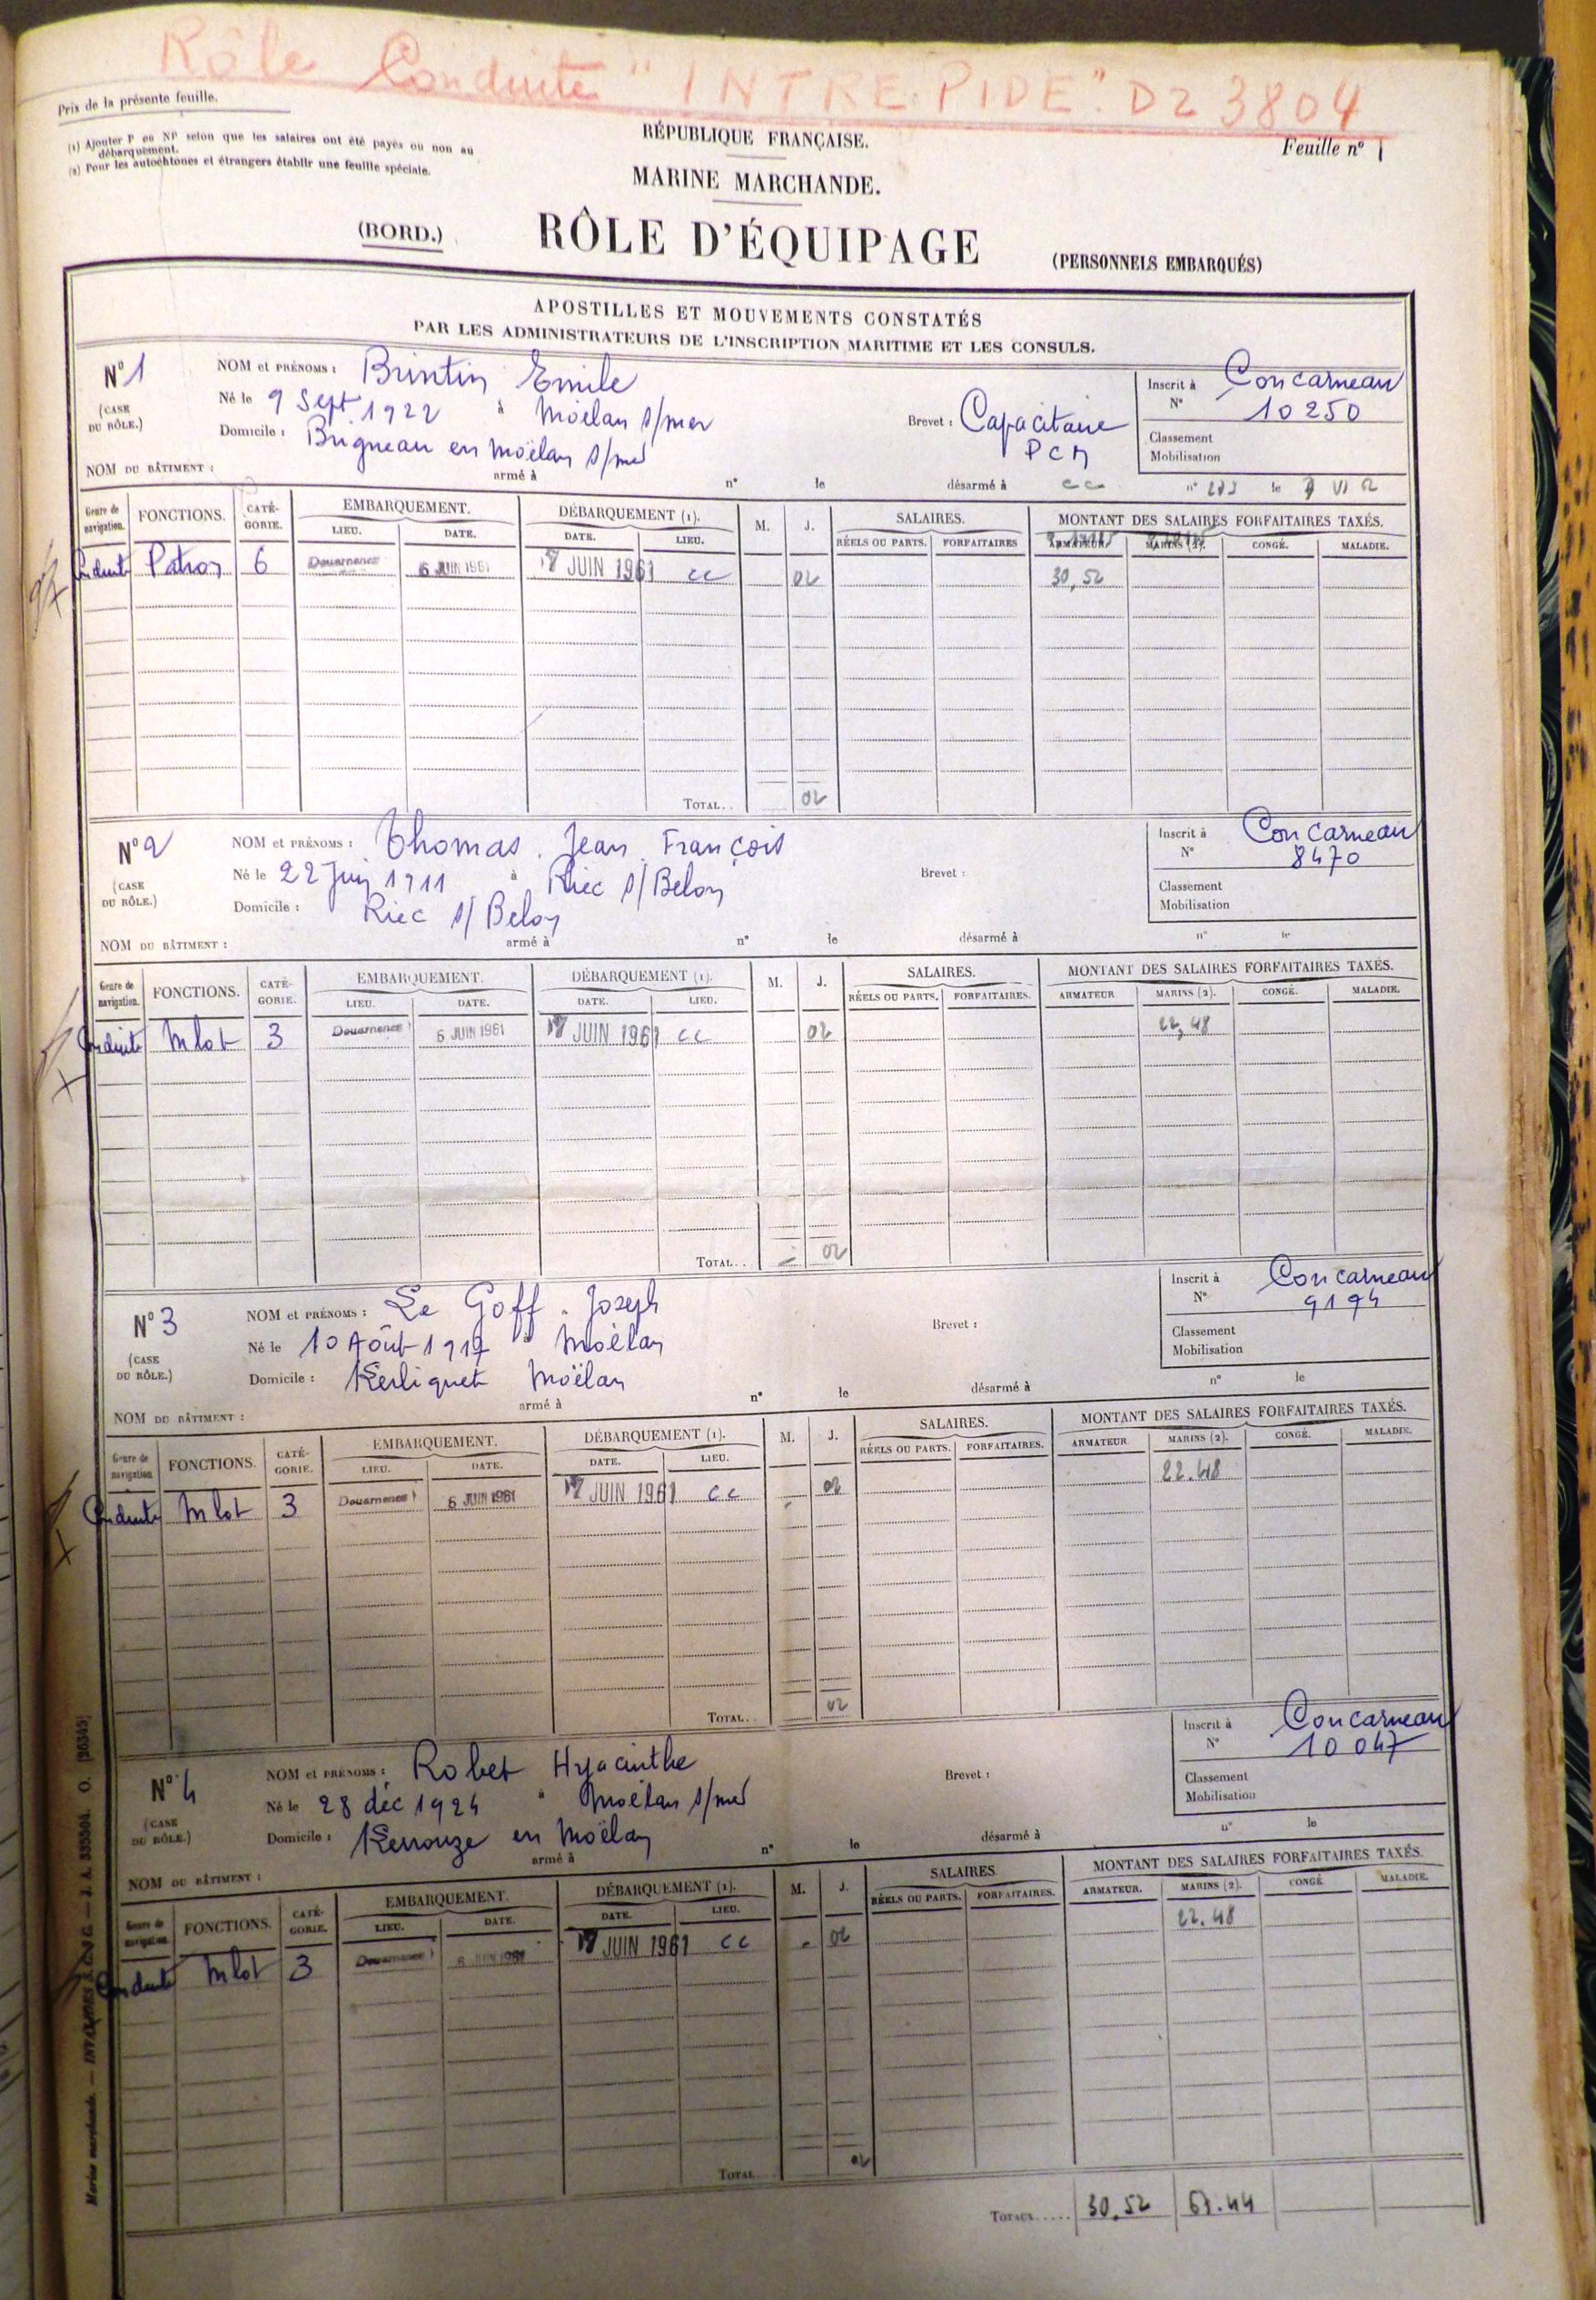 Rôle Conduite "INTREPIDE" DZ 3804
Prix de la présente feuille.
(1) Ajouter P ou NP selon que les salaires ont été payés ou non au
débarquement.
(2) Pour les autochtones et étrangers établir une feuille spéciale.
RÉPUBLIQUE FRANÇAISE.
Feuille n° 1
MARINE MARCHANDE.
(BORD.) RÔLE D'ÉQUIPAGE (PERSONNELS EMBARQUÉS)
APOSTILLES ET MOUVEMENTS CONSTATÉS
PAR LES ADMINISTRATEURS DE L'INSCRIPTION MARITIME ET LES CONSULS.
N° 1 NOM et PRÉNOMS : Brintin Emile Inscrit à Concarneau
(CASE Né le 9 Sept 1922 à Moëlan s/mer Brevet : Capacitaire N° 10250
DU RÔLE.) Domicile : Brigneau en Moëlan s/mer PCM Classement
Mobilisation
NOM DU BÂTIMENT : armé à n° le désarmé à cc n° le
Genre de navigation. FONCTIONS. CATÉGORIE. EMBARQUEMENT. DÉBARQUEMENT (1). M. J. SALAIRES. MONTANT DES SALAIRES FORFAITAIRES TAXÉS.
LIEU. DATE. DATE. LIEU. RÉELS OU PARTS. FORFAITAIRES ARMATEUR. MARINS (2). CONGÉ. MALADIE.
Conduite Patron 6 Douarnenez 6 JUIN 1961 7 JUIN 1961 cc 02 30,52
TOTAL. . 02
N° 2 NOM et PRÉNOMS : Thomas . Jean . François Inscrit à Concarneau
(CASE Né le 22 Juin 1911 à Riec s/Belon Brevet : N° 8470
DU RÔLE.) Domicile : Riec s/Belon Classement
Mobilisation
NOM DU BÂTIMENT : armé à n° le désarmé à n° le
Genre de navigation. FONCTIONS. CATÉGORIE. EMBARQUEMENT. DÉBARQUEMENT (1). M. J. SALAIRES. MONTANT DES SALAIRES FORFAITAIRES TAXÉS.
LIEU. DATE. DATE. LIEU. RÉELS OU PARTS. FORFAITAIRES. ARMATEUR MARINS (2). CONGÉ. MALADIE.
Conduite Mlot 3 Douarnenez 6 JUIN 1961 7 JUIN 1961 cc 02 22,48
TOTAL. . 02
N° 3 NOM et PRÉNOMS : Le Goff . Joseph Inscrit à Concarneau
(CASE Né le 10 Août 1917 à Moëlan Brevet : N° 9194
DU RÔLE.) Domicile : Kerliguet Moëlan Classement
Mobilisation
NOM DU BÂTIMENT : armé à n° le désarmé à n° le
Genre de navigation. FONCTIONS. CATÉGORIE. EMBARQUEMENT. DÉBARQUEMENT (1). M. J. SALAIRES. MONTANT DES SALAIRES FORFAITAIRES TAXÉS.
LIEU. DATE. DATE. LIEU. RÉELS OU PARTS. FORFAITAIRES. ARMATEUR MARINS (2). CONGÉ. MALADIE.
Conduite Mlot 3 Douarnenez 6 JUIN 1961 7 JUIN 1961 cc 02 22.48
TOTAL. . 02
N° 4 NOM et PRÉNOMS : Robet Hyacinthe Inscrit à Concarneau
(CASE Né le 28 déc 1924 à Moëlan s/mer Brevet : N° 10047
DU RÔLE.) Domicile : Kerrouze en Moëlan Classement
Mobilisation
NOM DU BÂTIMENT : armé à n° le désarmé à n° le
Genre de navigation. FONCTIONS. CATÉGORIE. EMBARQUEMENT. DÉBARQUEMENT (1). M. J. SALAIRES. MONTANT DES SALAIRES FORFAITAIRES TAXÉS.
LIEU. DATE. DATE. LIEU. RÉELS OU PARTS. FORFAITAIRES. ARMATEUR. MARINS (2). CONGÉ MALADIE.
Conduite Mlot 3 Douarnenez 6 JUIN 1961 7 JUIN 1961 cc 02 22.48
TOTAL 02
TOTAUX..... 30,52 67.44
Marine marchande.